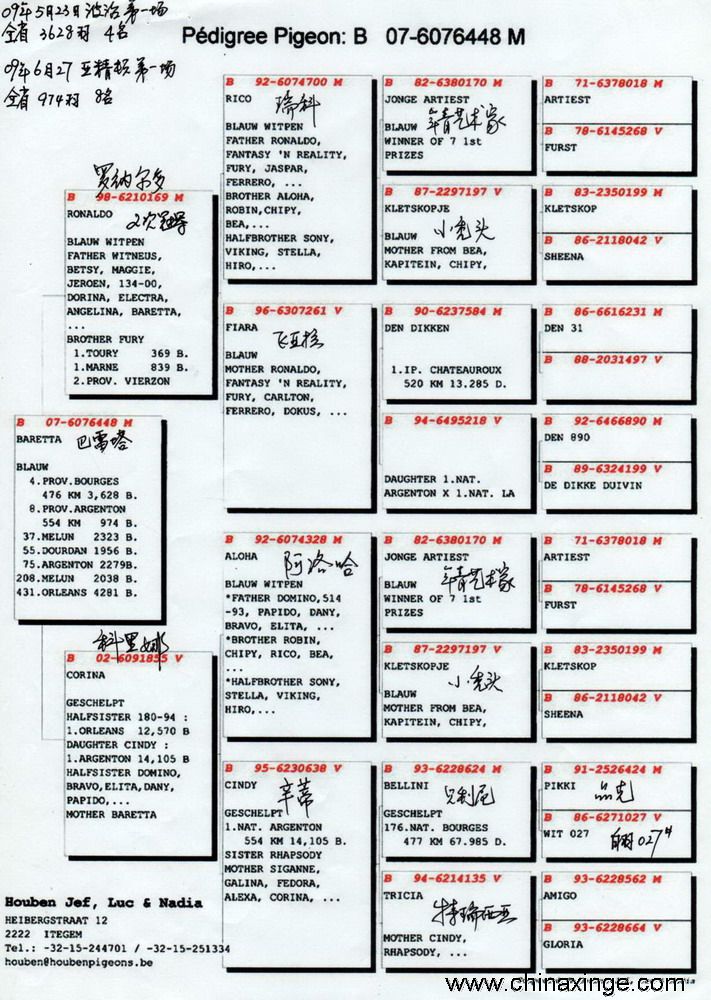 09年5月23日波治第一场
全省 3628羽 4名
09年6月27 亚精顿第一场
全省 974羽 8名
Pédigree Pigeon: B 07-6076448 M
B 07-6076448 M
BARETTA 巴雷塔
BLAUW
4.PROV.BOURGES
476 KM 3,628 B.
8.PROV.ARGENTON
554 KM 974 B.
37.MELUN 2323 B.
55.DOURDAN 1956 B.
75.ARGENTON 2279B.
208.MELUN 2038 B.
431.ORLEANS 4281 B.
罗纳尔多
B 98-6210169 M
RONALDO 2次冠军
BLAUW WITPEN
FATHER WITNEUS,
BETSY, MAGGIE,
JEROEN, 134-00,
DORINA, ELECTRA,
ANGELINA, BARETTA,
...
BROTHER FURY
1.TOURY 369 B.
1.MARNE 839 B.
2.PROV. VIERZON
科里娜
B 02-6091855 V
CORINA
GESCHELPT
HALFSISTER 180-94 :
1.ORLEANS 12,570 B
DAUGHTER CINDY :
1.ARGENTON 14,105 B
HALFSISTER DOMINO,
BRAVO,ELITA,DANY,
PAPIDO,...
MOTHER BARETTA
B 92-6074700 M
RICO 瑞科
BLAUW WITPEN
FATHER RONALDO,
FANTASY 'N REALITY,
FURY, JASPAR,
FERRERO, ...
BROTHER ALOHA,
ROBIN,CHIPY,
BEA,...
HALFBROTHER SONY,
VIKING, STELLA,
HIRO,...
B 96-6307261 V
FIARA 飞亚拉
BLAUW
MOTHER RONALDO,
FANTASY 'N REALITY,
FURY, CARLTON,
FERRERO, DOKUS, ...
B 92-6074328 M
ALOHA 阿洛哈
BLAUW WITPEN
*FATHER DOMINO,514
-93, PAPIDO, DANY,
BRAVO, ELITA, ...
*BROTHER ROBIN,
CHIPY, RICO, BEA,
...
*HALFBROTHER SONY,
STELLA, VIKING,
HIRO,...
B 95-6230638 V
CINDY 辛蒂
GESCHELPT
1.NAT. ARGENTON
554 KM 14,105 B.
SISTER RHAPSODY
MOTHER SIGANNE,
GALINA, FEDORA,
ALEXA, CORINA, ...
B 82-6380170 M
JONGE ARTIEST
BLAUW 年青艺术家
WINNER OF 7 1st
PRIZES
B 87-2297197 V
KLETSKOPJE
BLAUW 小秃头
MOTHER FROM BEA,
KAPITEIN, CHIPY,
B 90-6237584 M
DEN DIKKEN
1.IP. CHATEAUROUX
520 KM 13.285 D.
B 94-6495218 V
DAUGHTER 1.NAT.
ARGENTON X 1.NAT. LA
B 82-6380170 M
JONGE ARTIEST
BLAUW 年青艺术家
WINNER OF 7 1st
PRIZES
B 87-2297197 V
KLETSKOPJE
BLAUW 小秃头
MOTHER FROM BEA,
KAPITEIN, CHIPY,
B 93-6228624 M
BELLINI 贝利尼
GESCHELPT
176.NAT. BOURGES
477 KM 67.985 D.
B 94-6214135 V
TRICIA 特瑞西亚
MOTHER CINDY,
RHAPSODY, ...
B 71-6378018 M
ARTIEST
B 78-6145268 V
FURST
B 83-2350199 M
KLETSKOP
B 86-2118042 V
SHEENA
B 86-6616231 M
DEN 31
B 88-2031497 V
B 92-6466890 M
DEN 890
B 89-6324199 V
DE DIKKE DUIVIN
B 71-6378018 M
ARTIEST
B 78-6145268 V
FURST
B 83-2350199 M
KLETSKOP
B 86-2118042 V
SHEENA
B 91-2526424 M
PIKKI 品克
B 86-6271027 V
WIT 027
B 93-6228562 M
AMIGO
B 93-6228664 V
GLORIA
Houben Jef, Luc & Nadia
HEIBERGSTRAAT 12
2222 ITEGEM
Tel.: -32-15-244701 / -32-15-251334
houben@houbenpigeons.be
www.chinaxinge.com